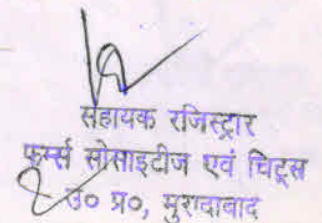 सहायक रजिस्ट्रार
फर्म्स सोसाइटीज एवं चिट्स
उ० प्र०, मुरादाबाद